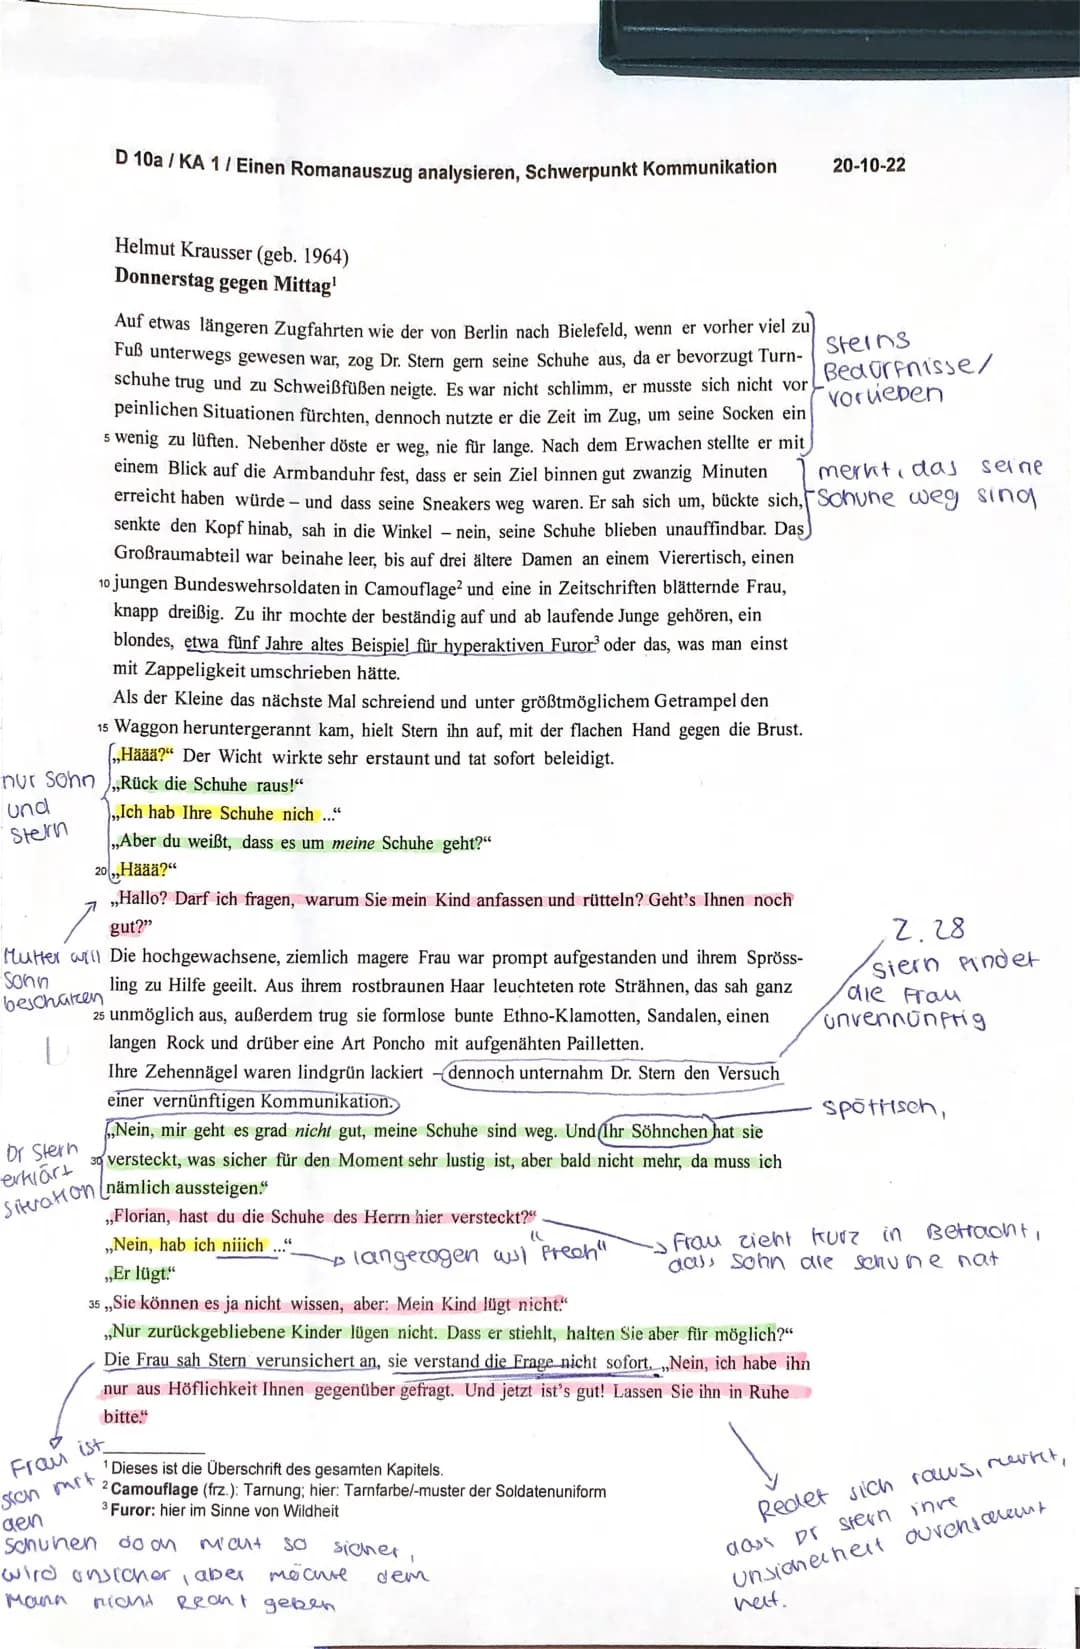 D 10a / KA 1 / Einen Romanauszug analysieren, Schwerpunkt Kommunikation 20-10-22
Helmut Krausser (geb. 1964)
Donnerstag gegen Mittag¹
Auf etwas längeren Zugfahrten wie der von Berlin nach Bielefeld, wenn er vorher viel zu
Fuß unterwegs gewesen war, zog Dr. Stern gern seine Schuhe aus, da er bevorzugt Turn-
schuhe trug und zu Schweißfüßen neigte. Es war nicht schlimm, er musste sich nicht vor
peinlichen Situationen fürchten, dennoch nutzte er die Zeit im Zug, um seine Socken ein
5 wenig zu lüften. Nebenher döste er weg, nie für lange. Nach dem Erwachen stellte er mit
einem Blick auf die Armbanduhr fest, dass er sein Ziel binnen gut zwanzig Minuten
erreicht haben würde – und dass seine Sneakers weg waren. Er sah sich um, bückte sich,
senkte den Kopf hinab, sah in die Winkel – nein, seine Schuhe blieben unauffindbar. Das
Großraumabteil war beinahe leer, bis auf drei ältere Damen an einem Vierertisch, einen
10 jungen Bundeswehrsoldaten in Camouflage² und eine in Zeitschriften blätternde Frau,
knapp dreißig. Zu ihr mochte der beständig auf und ab laufende Junge gehören, ein
blondes, etwa fünf Jahre altes Beispiel für hyperaktiven Furor³ oder das, was man einst
mit Zappeligkeit umschrieben hätte.
Als der Kleine das nächste Mal schreiend und unter größtmöglichem Getrampel den
15 Waggon heruntergerannt kam, hielt Stern ihn auf, mit der flachen Hand gegen die Brust.
„Hääã?“ Der Wicht wirkte sehr erstaunt und tat sofort beleidigt.
„Rück die Schuhe raus!“
„Ich hab Ihre Schuhe nich ...“
„Aber du weißt, dass es um meine Schuhe geht?“
20 „Häää?“
„Hallo? Darf ich fragen, warum Sie mein Kind anfassen und rütteln? Geht's Ihnen noch
gut?”
Die hochgewachsene, ziemlich magere Frau war prompt aufgestanden und ihrem Spröss-
ling zu Hilfe geeilt. Aus ihrem rostbraunen Haar leuchteten rote Strähnen, das sah ganz
25 unmöglich aus, außerdem trug sie formlose bunte Ethno-Klamotten, Sandalen, einen
langen Rock und drüber eine Art Poncho mit aufgenähten Pailletten.
Ihre Zehennägel waren lindgrün lackiert – dennoch unternahm Dr. Stern den Versuch
einer vernünftigen Kommunikation.
„Nein, mir geht es grad nicht gut, meine Schuhe sind weg. Und Ihr Söhnchen hat sie
30 versteckt, was sicher für den Moment sehr lustig ist, aber bald nicht mehr, da muss ich
nämlich aussteigen.“
„Florian, hast du die Schuhe des Herrn hier versteckt?“
„Nein, hab ich niiich ...“
„Er lügt.“
35 „Sie können es ja nicht wissen, aber: Mein Kind lügt nicht.“
„Nur zurückgebliebene Kinder lügen nicht. Dass er stiehlt, halten Sie aber für möglich?“
Die Frau sah Stern verunsichert an, sie verstand die Frage nicht sofort. „Nein, ich habe ihn
nur aus Höflichkeit Ihnen gegenüber gefragt. Und jetzt ist's gut! Lassen Sie ihn in Ruhe
bitte.“
¹ Dieses ist die Überschrift des gesamten Kapitels.
² Camouflage (frz.): Tarnung; hier: Tarnfarbe/-muster der Soldatenuniform
³ Furor: hier im Sinne von Wildheit
Sterns
Bedürfnisse/
Vorlieben
merkt, das seine
Schuhe weg sind
nur Sohn
und
Stern
Mutter will
Sohn
beschützen
Z. 28
Stern findet
die Frau
unvernünftig
spöttisch,
Dr Stern
erklärt
Situation
langezogen
"frech"
Frau zieht kurz in Betracht,
dass Sohn die Schuhe hat
Frau ist
sich mit
den
Schuhen doch nicht so sicher,
wird unsicher, aber möchte dem
Mann nicht Recht geben
Redet sich raus, merkt,
dass Dr Stern ihre
Unsicherheit durchschaut
hat.